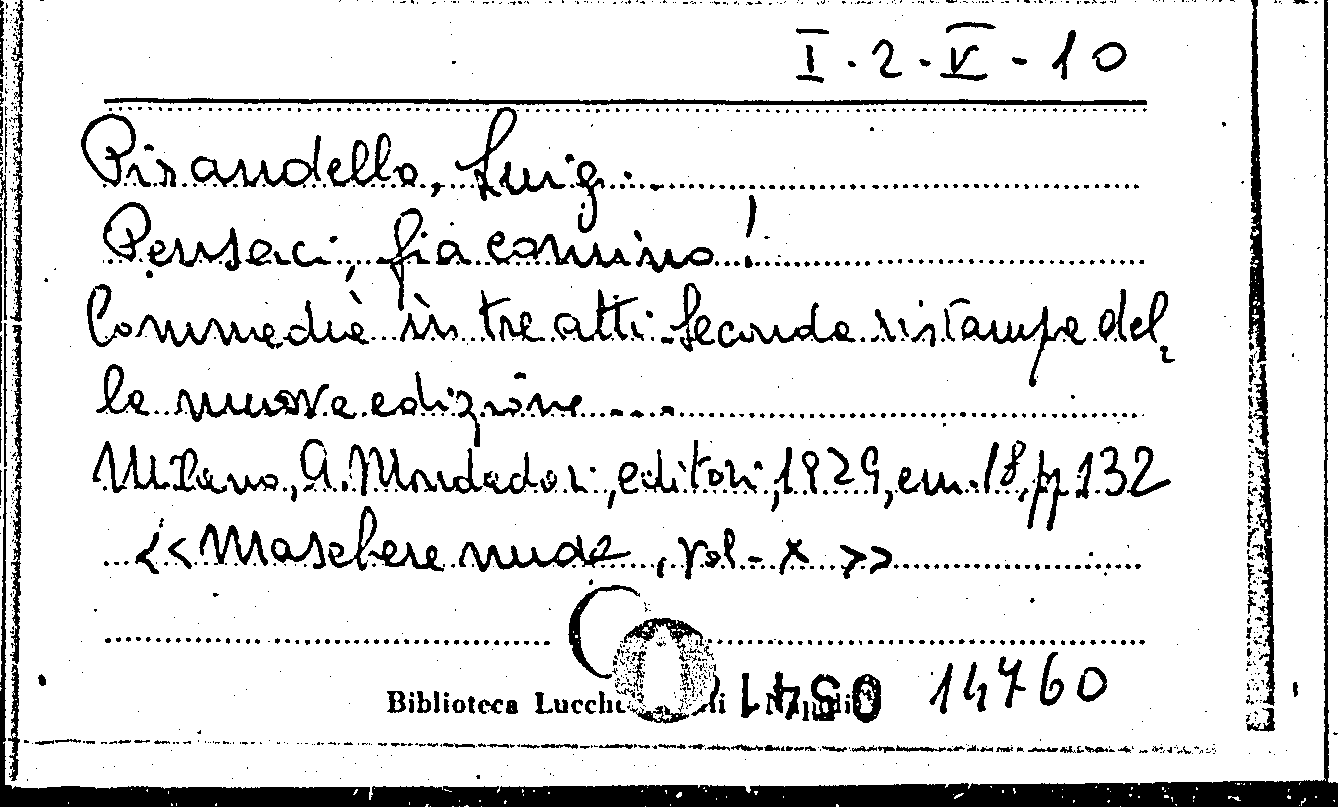 I.2.V-10
Pirandello, Luigi.
Pensaci, Giacomino!
Commedia in tre atti. Seconda ristampa del-
la nuova edizione ...
Milano, A. Mondadori, editori, 1929, em. 18, pp 132
<< Maschere nude, vol. X >>
14760
Biblioteca